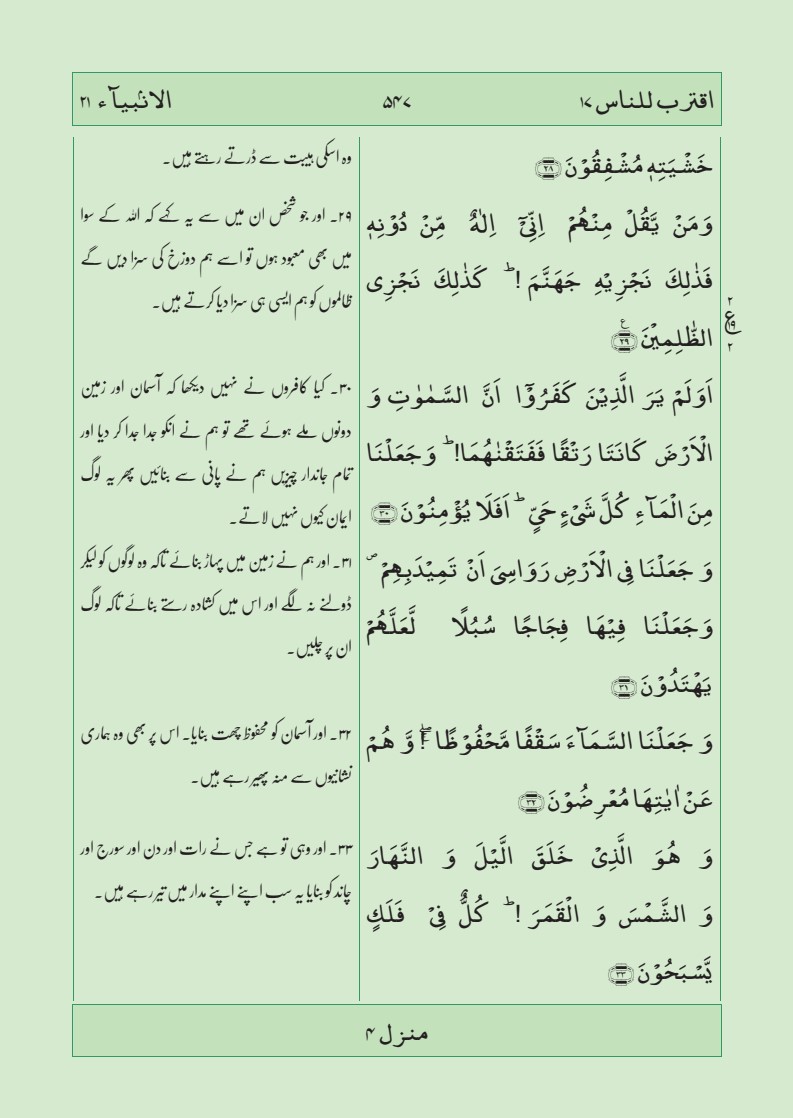 اقترب للناس ۱۷
۵۴۷
الانبیآء ۲۱
خَشْیَتِهٖ مُشْفِقُوْنَ ۲۸
وَمَنْ یَّقُلْ مِنْهُمْ اِنِّیْۤ اِلٰهٌ مِّنْ دُوْنِهٖ
فَذٰلِكَ نَجْزِیْهِ جَهَنَّمَ ! ؕ كَذٰلِكَ نَجْزِی
الظّٰلِمِیْنَ ۲۹ ع
۲
ع
۱۹
۲
اَوَلَمْ یَرَ الَّذِیْنَ كَفَرُوْۤا اَنَّ السَّمٰوٰتِ وَ
الْاَرْضَ كَانَتَا رَتْقًا فَفَتَقْنٰهُمَا! ؕ وَجَعَلْنَا
مِنَ الْمَآءِ كُلَّ شَیْءٍ حَیٍّ ؕ اَفَلَا یُؤْمِنُوْنَ ۳۰
وَ جَعَلْنَا فِی الْاَرْضِ رَوَاسِیَ اَنْ تَمِیْدَبِهِمْ ۪
وَجَعَلْنَا فِیْهَا فِجَاجًا سُبُلًا لَّعَلَّهُمْ
یَهْتَدُوْنَ ۳۱
وَ جَعَلْنَا السَّمَآءَ سَقْفًا مَّحْفُوْظًا ۖۚ! وَّ هُمْ
عَنْ اٰیٰتِهَا مُعْرِضُوْنَ ۳۲
وَ هُوَ الَّذِیْ خَلَقَ الَّیْلَ وَ النَّهَارَ
وَ الشَّمْسَ وَ الْقَمَرَ ! ؕ كُلٌّ فِیْ فَلَكٍ
یَّسْبَحُوْنَ ۳۳
وہ اسکی ہیبت سے ڈرتے رہتے ہیں۔
۲۹۔ اور جو شخص ان میں سے یہ کہے کہ اللہ کے سوا
میں بھی معبود ہوں تو اسے ہم دوزخ کی سزا دیں گے
ظالموں کو ہم ایسی ہی سزا دیا کرتے ہیں۔
۳۰۔ کیا کافروں نے نہیں دیکھا کہ آسمان اور زمین
دونوں ملے ہوئے تھے تو ہم نے انکو جدا جدا کر دیا اور
تمام جاندار چیزیں ہم نے پانی سے بنائیں پھر یہ لوگ
ایمان کیوں نہیں لاتے۔
۳۱۔ اور ہم نے زمین میں پہاڑ بنائے تاکہ وہ لوگوں کو لیکر
ڈولنے نہ لگے اور اس میں کشادہ رستے بنائے تاکہ لوگ
ان پر چلیں۔
۳۲۔ اور آسمان کو محفوظ چھت بنایا۔ اس پر بھی وہ ہماری
نشانیوں سے منہ پھیر رہے ہیں۔
۳۳۔ اور وہی تو ہے جس نے رات اور دن اور سورج اور
چاند کو بنایا یہ سب اپنے اپنے مدار میں تیر رہے ہیں۔
منزل ۴